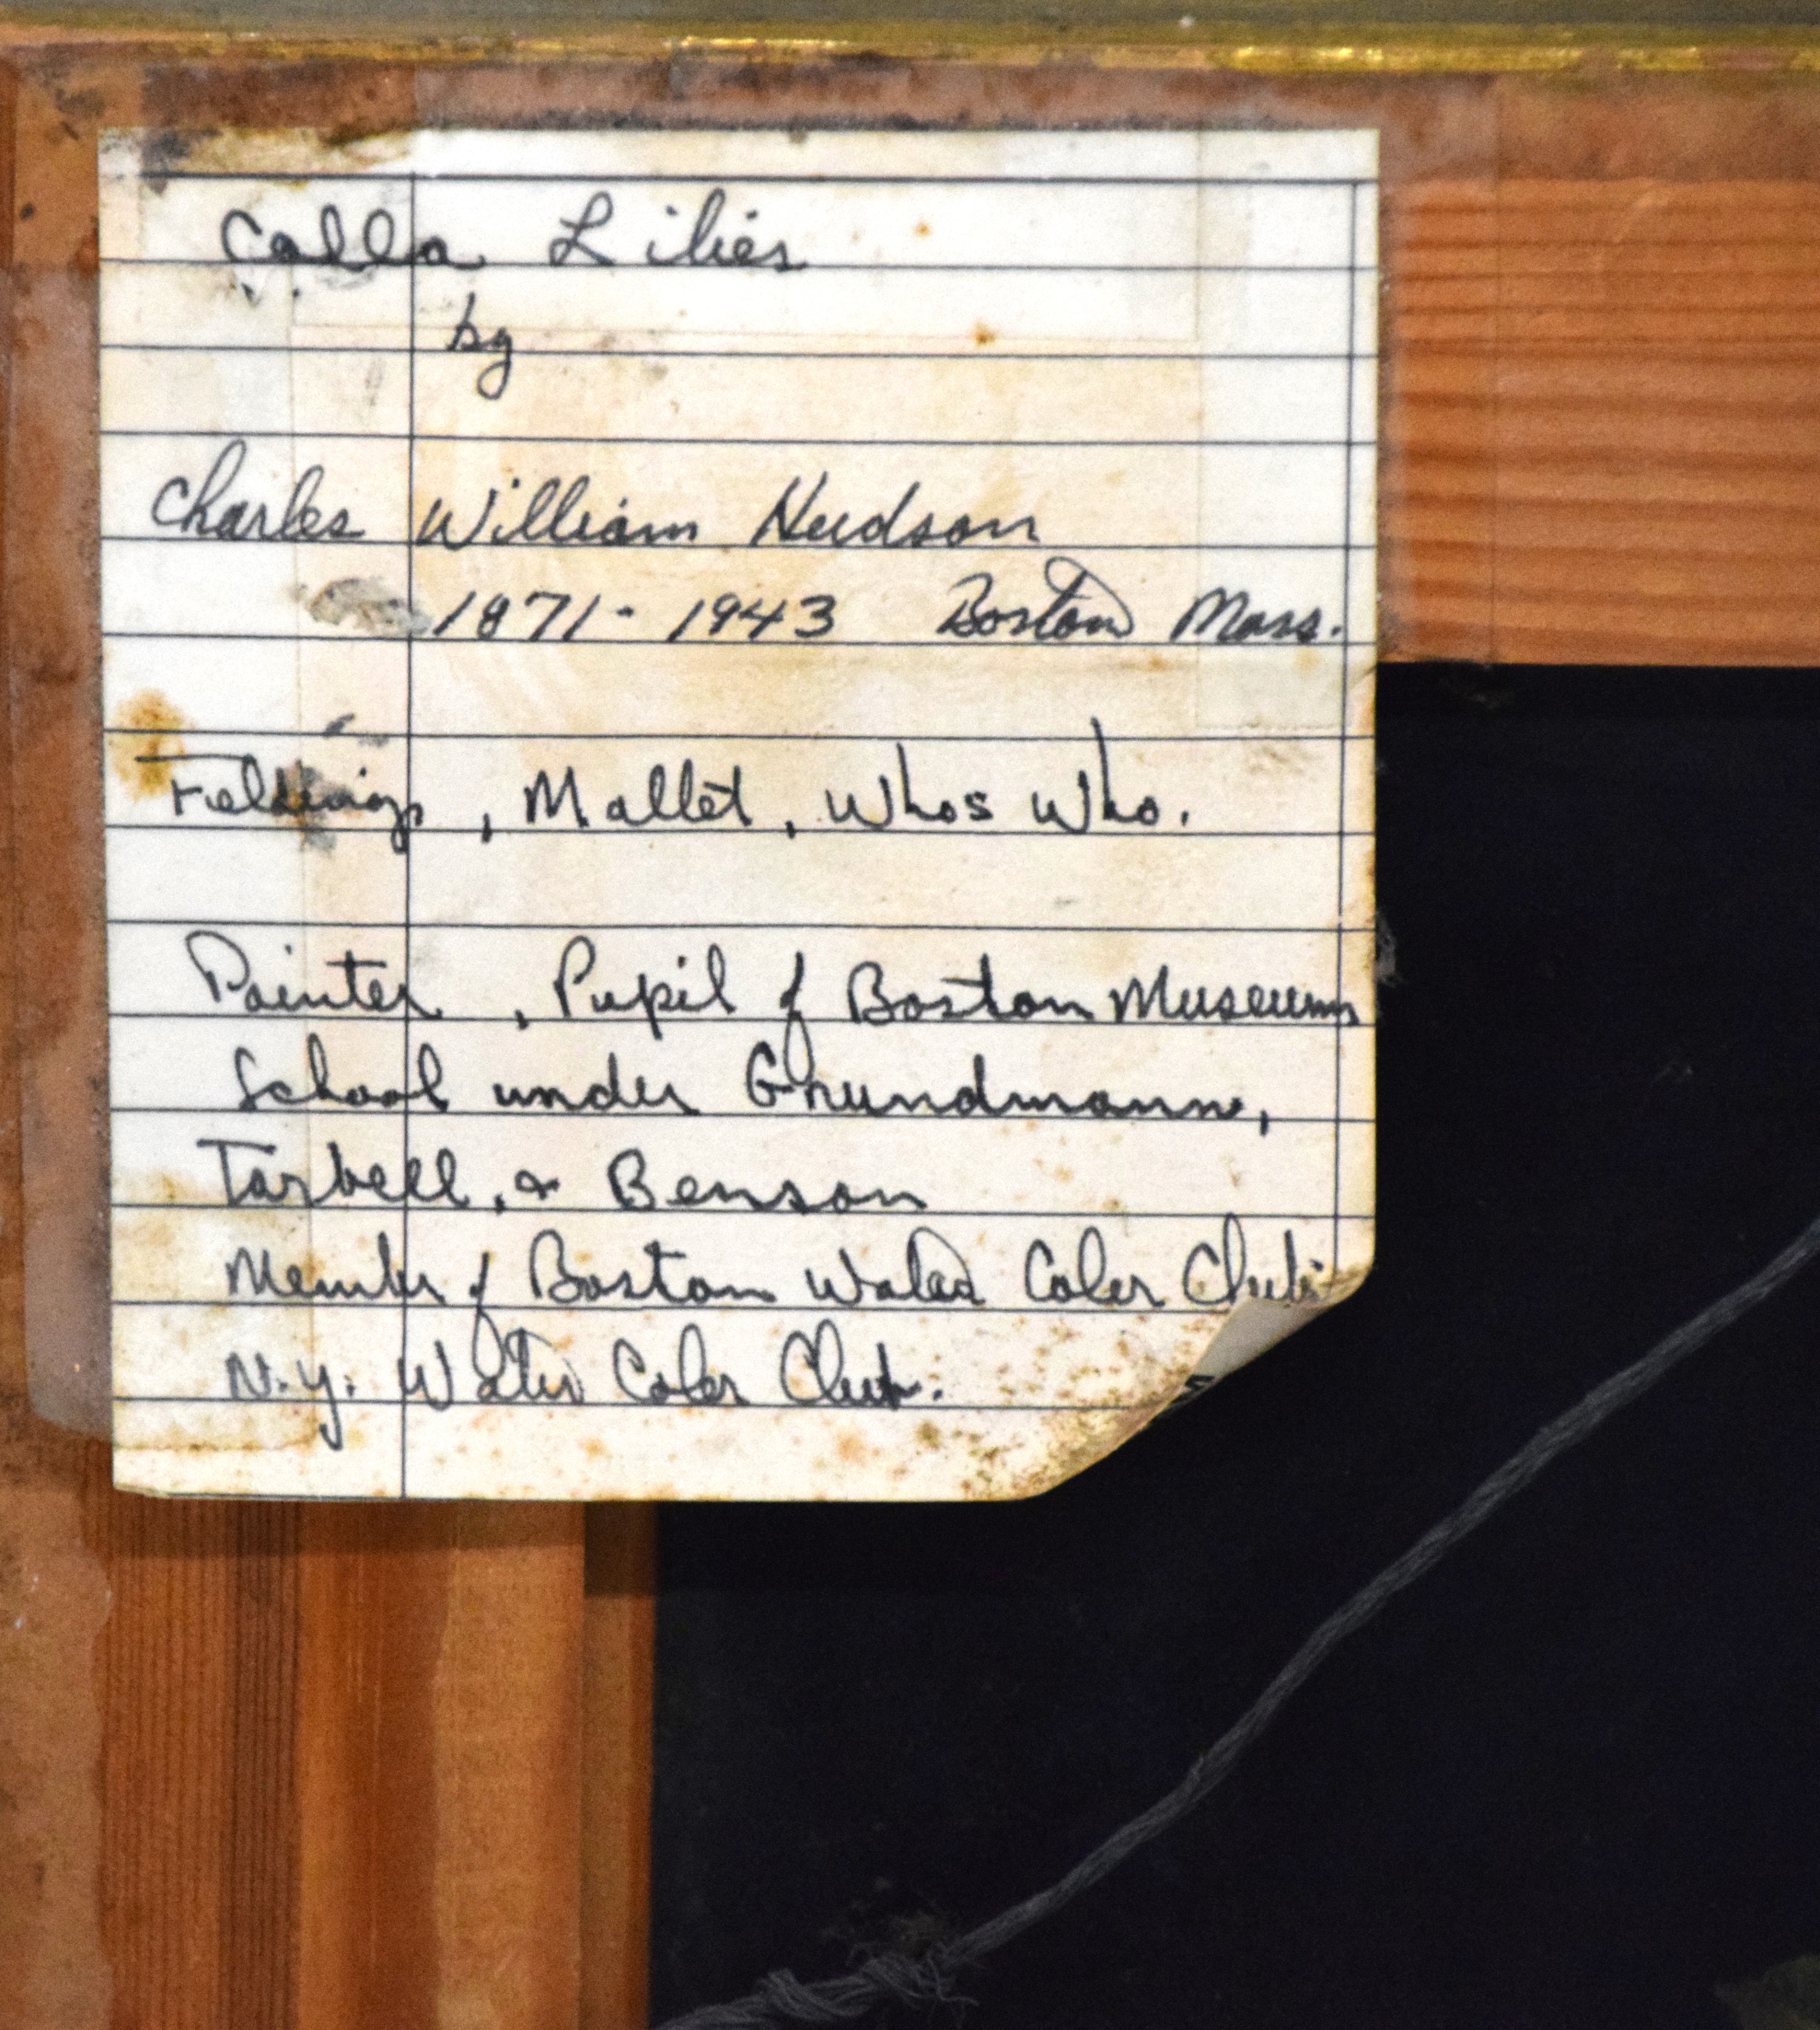 Calla Lilies
by
Charles William Hudson
1871-1943 Boston Mass.
Fieldings, Mallet, Whos Who.
Painter, Pupil of Boston Museum
School under Grundmann,
Tarbell, & Benson
Member of Boston Water Color Club
N.Y. Water Color Club.